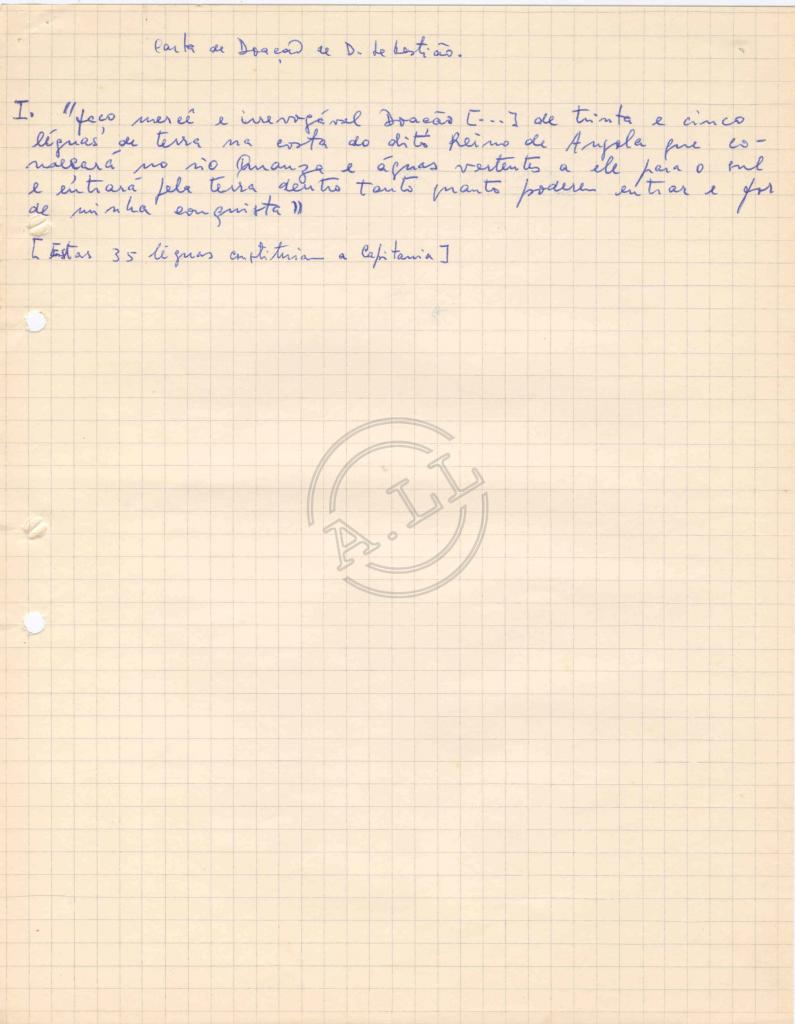 Carta de Doação de D. Sebastião.
I. "faço mercê e irrevogável Doação [---] de trinta e cinco
léguas de terra na costa do dito Reino de Angola que co-
meçará no rio Quanza e águas vertentes a ele para o sul
e entrará pela terra dentro tanto quanto poderem entrar e for
de minha conquista"
[Estas 35 léguas constituiam a Capitania]
A.LL